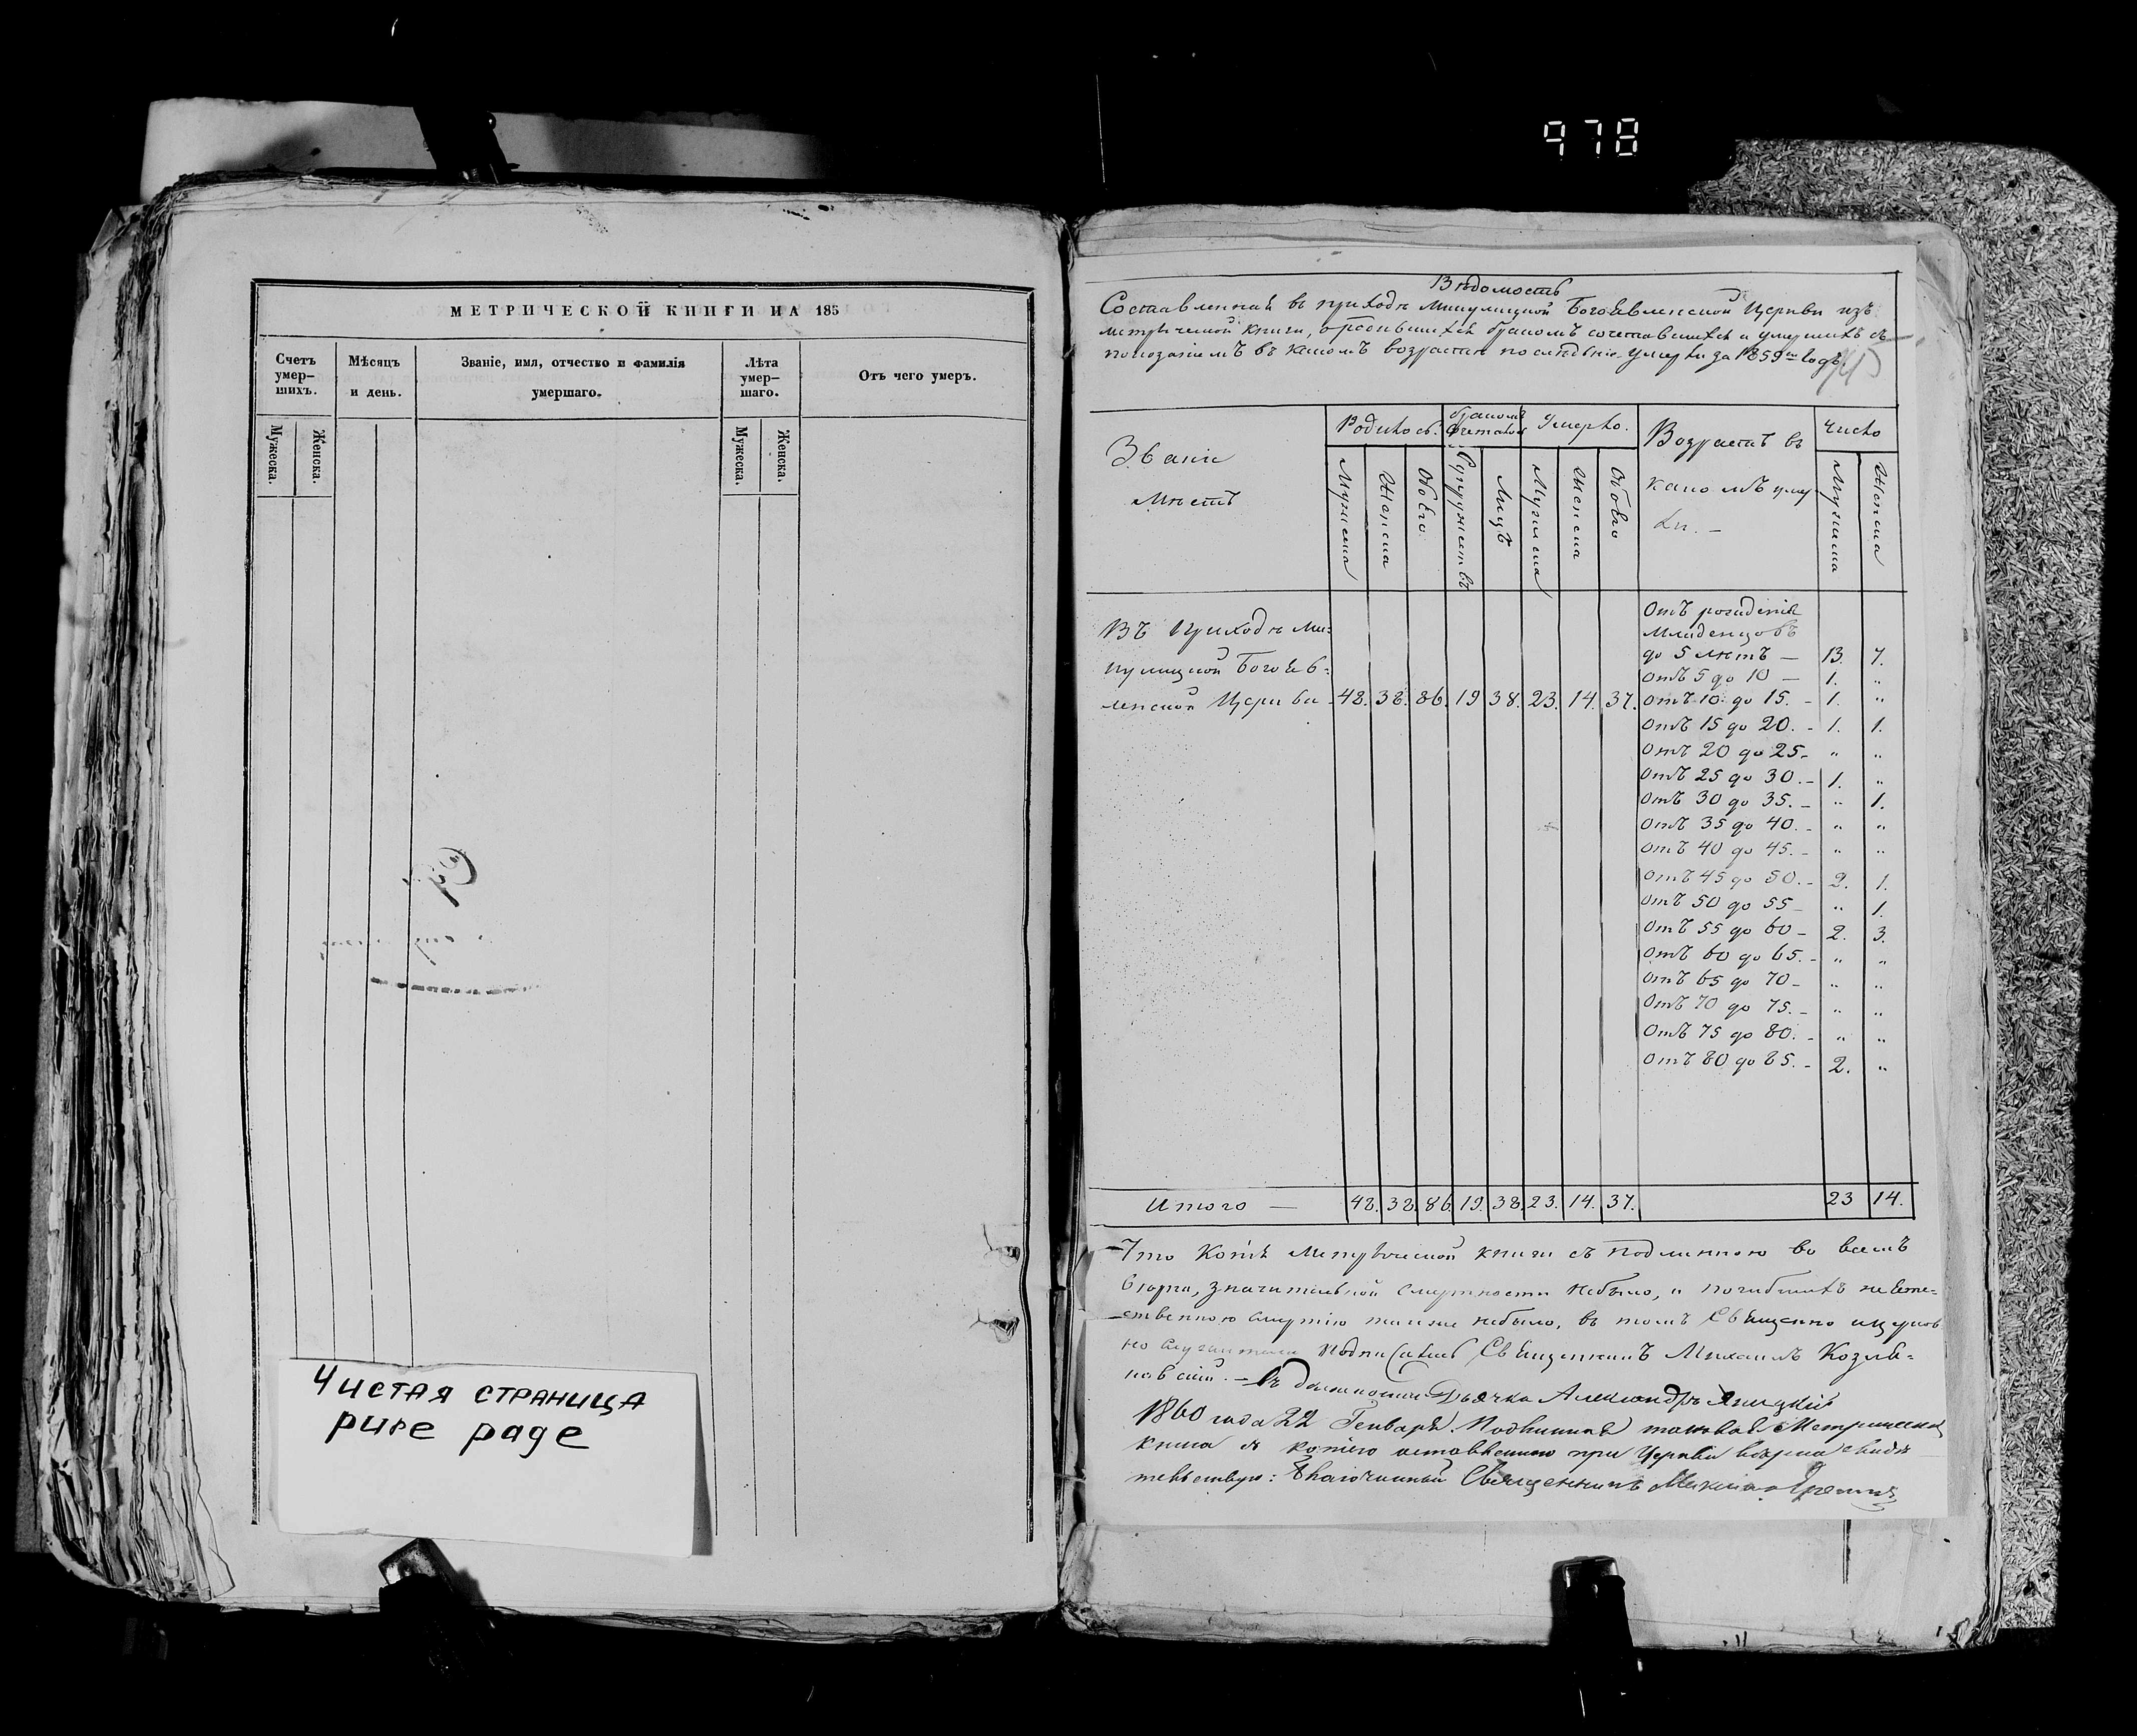 978
МЕТРИЧЕСКОЙ КНИГИ НА 185
Счетъ умер-
шихъ.
Мужеска.
Женска.
Мѣсяцъ
и день.
Званіе, имя, отчество и фамилія
умершаго.
Лѣта
умер-
шаго.
Мужеска.
Женска.
Отъ чего умеръ.
Чистая страница
pure page
Вѣдомость
Составленная въ приходѣ Богоявленской Церкви изъ
метрической книги, о бракомъ сочетавшихся и умершихъ съ
въ какомъ возрастѣ послѣдніе умерли за 1859й годъ
Званіе
мѣстъ
Родилось.
Мужеска
Женска
Обоего
бракомъ
Супружествъ
Лицъ
Умерло.
Мужеска
Женска
Обоего
Возрастъ въ
какомъ умер
ли. –
Число
Мужска
Женска
Въ Приходѣ
Богояв-
ленской Церкви 48. 38. 86. 19 38. 23. 14. 37.
Отъ рожденія
Младенцовъ
до 5 лѣтъ — 13. 7.
Отъ 5 до 10 — 1. „
Отъ 10 до 15. - 1. „
Отъ 15 до 20. - 1. 1.
Отъ 20 до 25 - „ „
Отъ 25 до 30. - 1. „
Отъ 30 до 35. - „ 1.
Отъ 35 до 40. - „ „
Отъ 40 до 45. - „ „
Отъ 45 до 50. - 2. 1.
Отъ 50 до 55 - „ 1.
Отъ 55 до 60 - 2. 3.
Отъ 60 до 65. - „ „
Отъ 65 до 70 - „ „
Отъ 70 до 75. - „ „
Отъ 75 до 80. - „ „
Отъ 80 до 85. - 2. „
Итого — 48. 38. 86. 19. 38. 23. 14. 37. 23 14.
Что Копія Метрической книги съ подлинною во всемъ
вѣрна, значительной смертности небыло, и погибшихъ неесте-
ственною смертію также небыло, въ томъ Священно церков
но служители подписались Священникъ Михаилъ
Въ должности Дьячка Александръ
1860 года 22 Генваря. Метрическая
книга съ копіею оставленною при Церкви вѣрна свидѣ
тельствую: Благочинный Священникъ